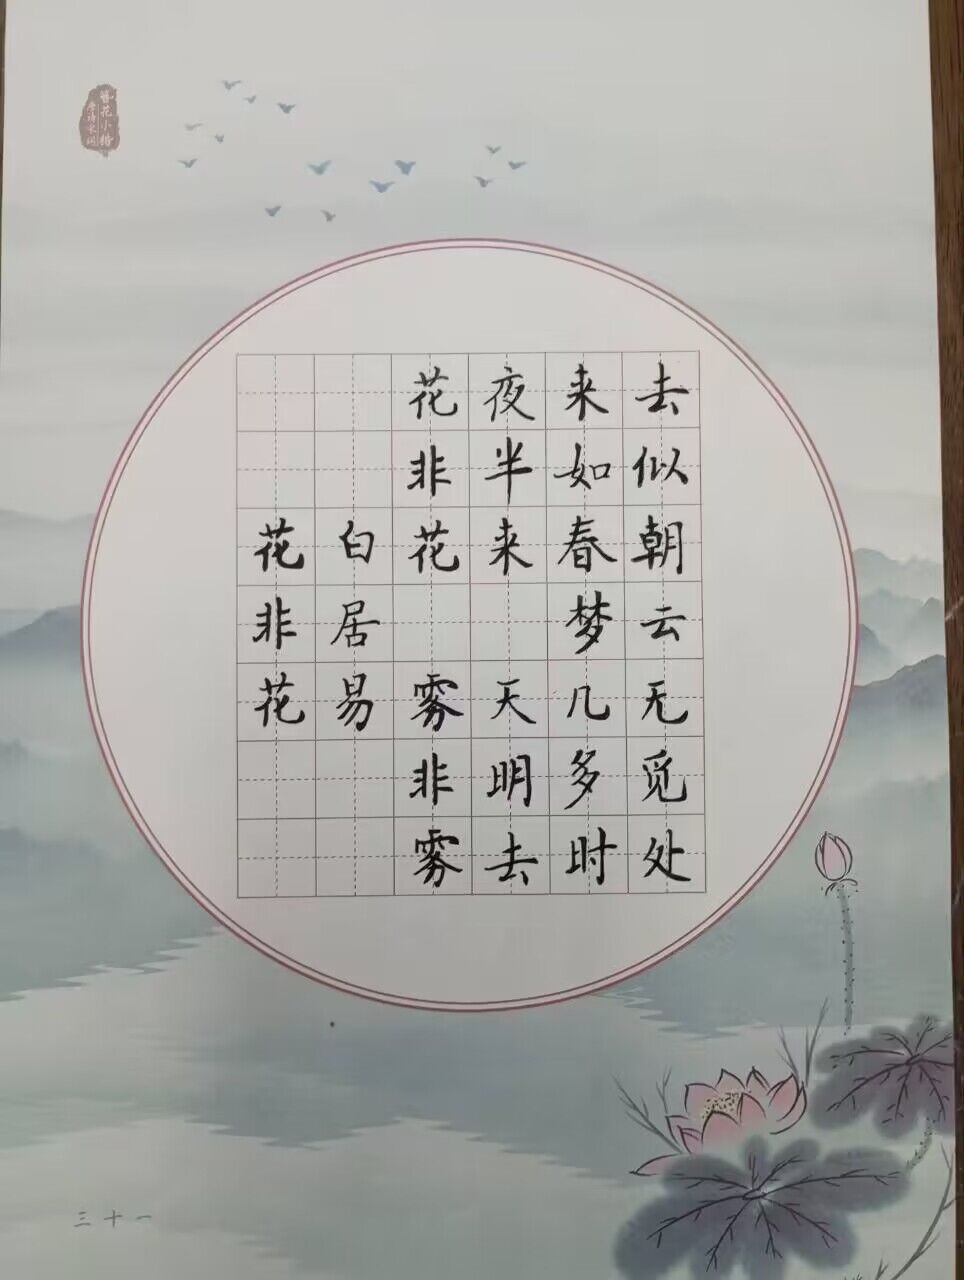 簪花小楷
唐诗宋词
花非花
白居易
花非花 雾非雾
夜半来 天明去
来如春梦几多时
去似朝云无觅处
三十一